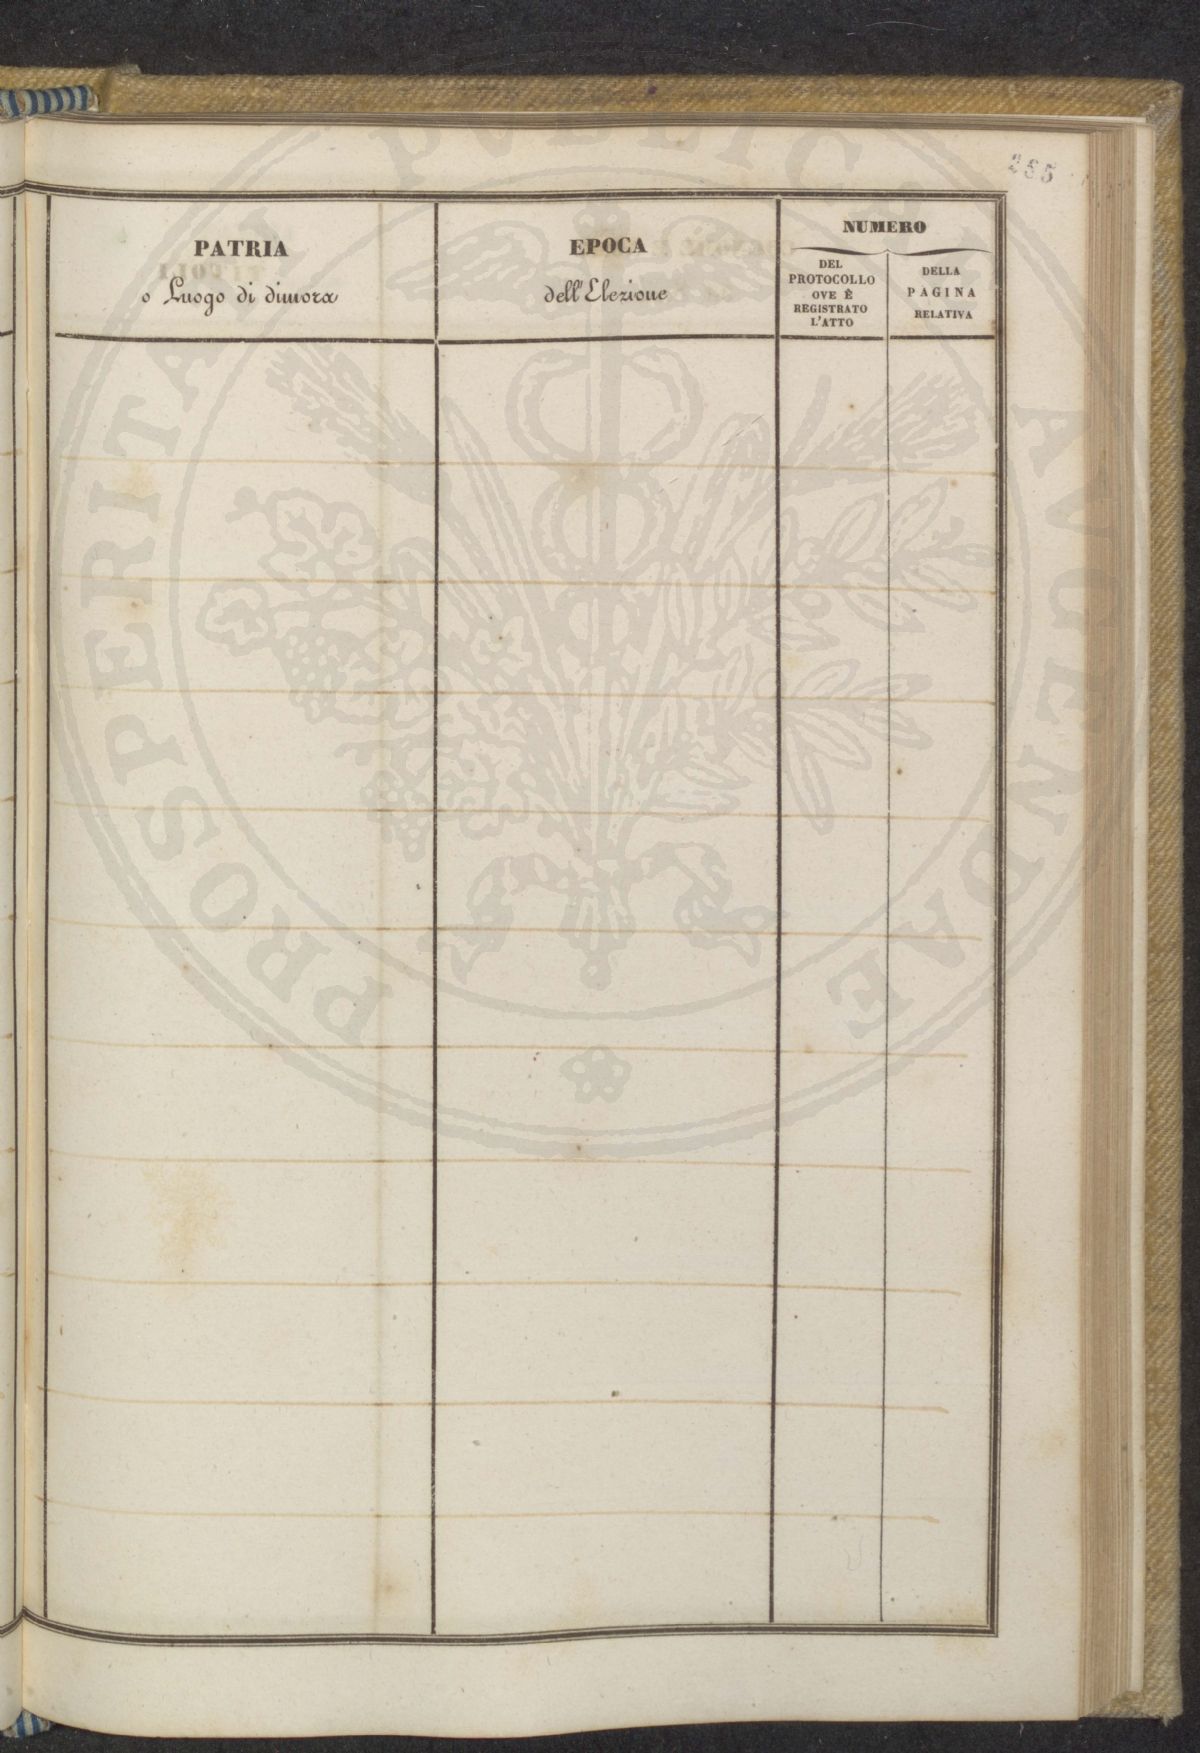 265
PATRIA
o Luogo di dimora
EPOCA
dell'Elezione
NUMERO
DEL
PROTOCOLLO
OVE È
REGISTRATO
L'ATTO
DELLA
PAGINA
RELATIVA
PROSPERITATI PUBLICAE AVGENDAE